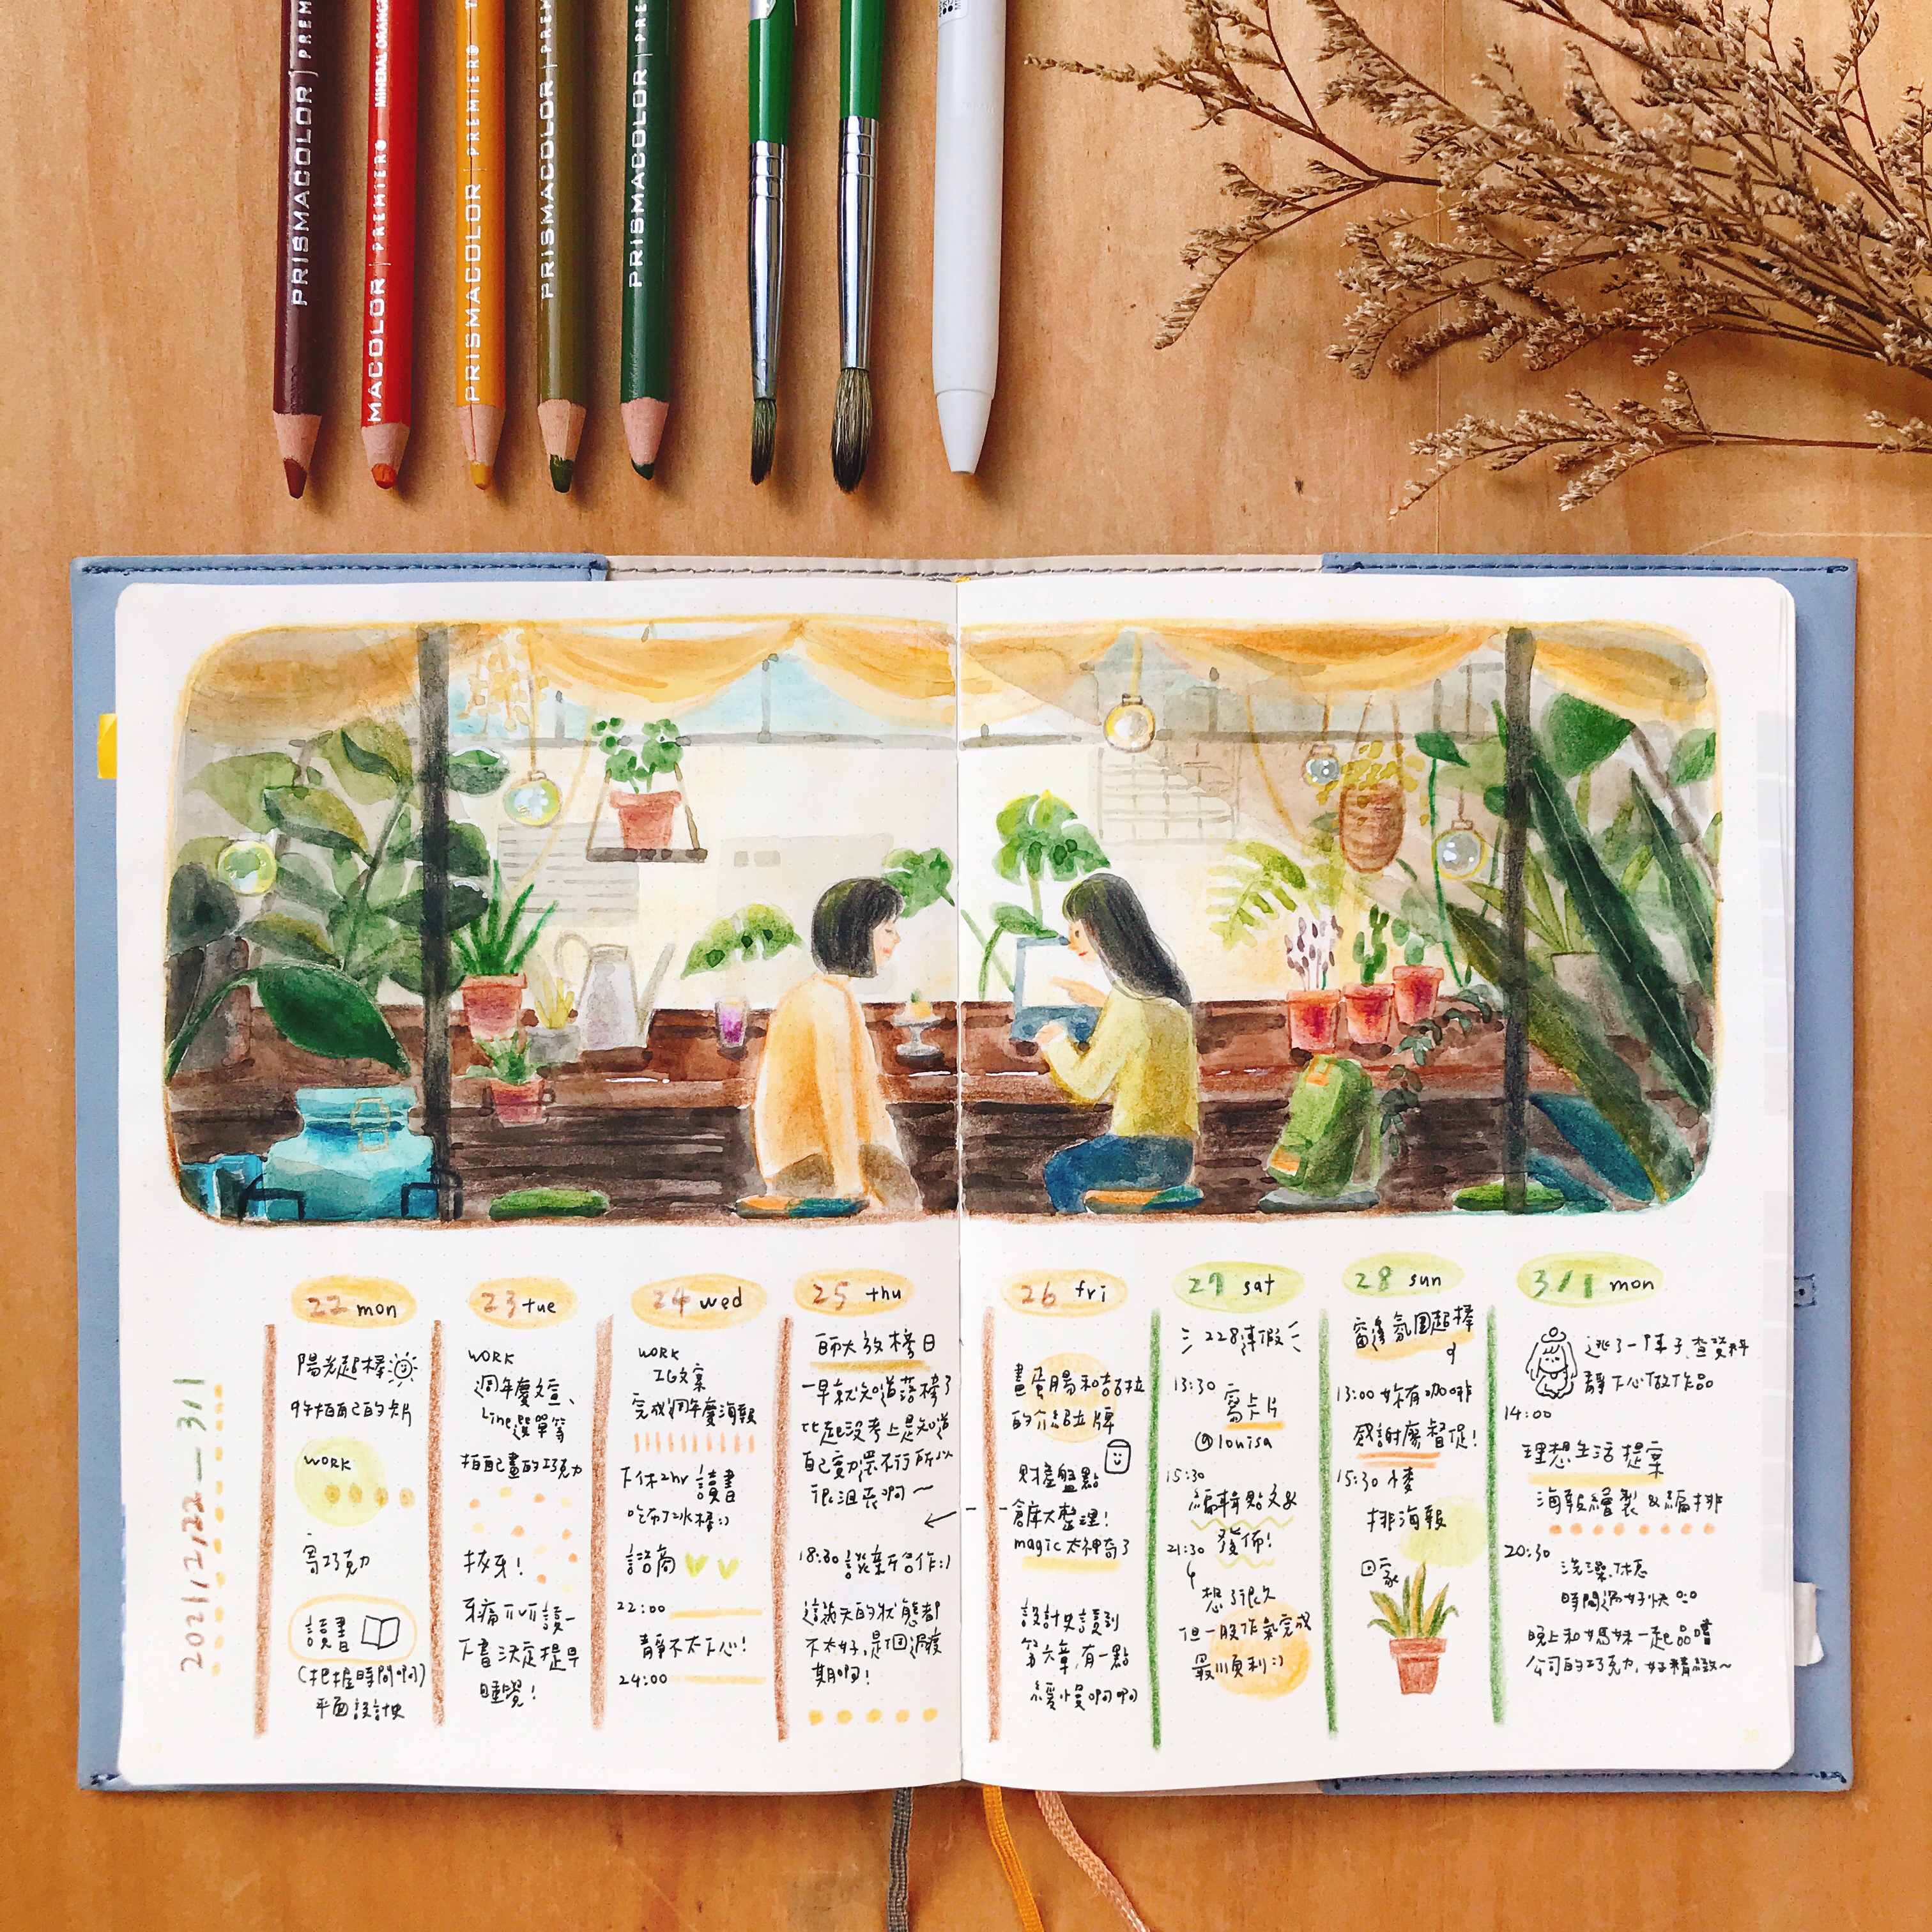 PRISMACOLOR | PREM
MACOLOR | PREMIER® MINERAL ORANG
PRISMACOLOR | PREMIER®
PRISMACOLOR | PREM
PRISMACOLOR | PRE
2021/2/22—3/1
22 mon
陽光超棒
9午拍自己的卡片
WORK
寄巧克力
讀書
(把握時間啊)
平面設計史
23 tue
WORK
週年慶文宣、
Line選單等
拍自己畫的巧克力
拔牙!
牙痛 讀一
下書決定提早
睡覺!
24 wed
WORK
IG文案
完成週年慶海報
下休2hr 讀書
吃布丁冰棒:)
諮商
22:00
靜不太下心!
24:00
25 thu
師大放榜日
一早就知道落榜了
比起沒考上是知道
自己實力還不行所以
很沮喪啊~
18:30 談新合作:)
這幾天的狀態都
不太好,是個過渡
期啊!
26 fri
畫蛋腸和吉拉
的介紹立牌
財產盤點
倉庫大整理!
magic 太神奇了
設計史讀到
第六章,有一點
緩慢啊啊
27 sat
228連假
13:30
寫卡片
@louisa
15:30
編輯貼文&
發佈!
21:30
想了很久
但一股作氣完成
最順利:)
28 sun
窗邊氛圍超棒
13:00 妳有咖啡
感謝廖督促!
15:30 小憩
排海報
回家
3/1 mon
逃了一陣子,查資料
靜下心做作品
14:00
理想生活提案
海報繪製&編排
20:30
洗澡、休息
時間過好快
晚上和媽妹一起品嚐
公司的巧克力,好精緻~